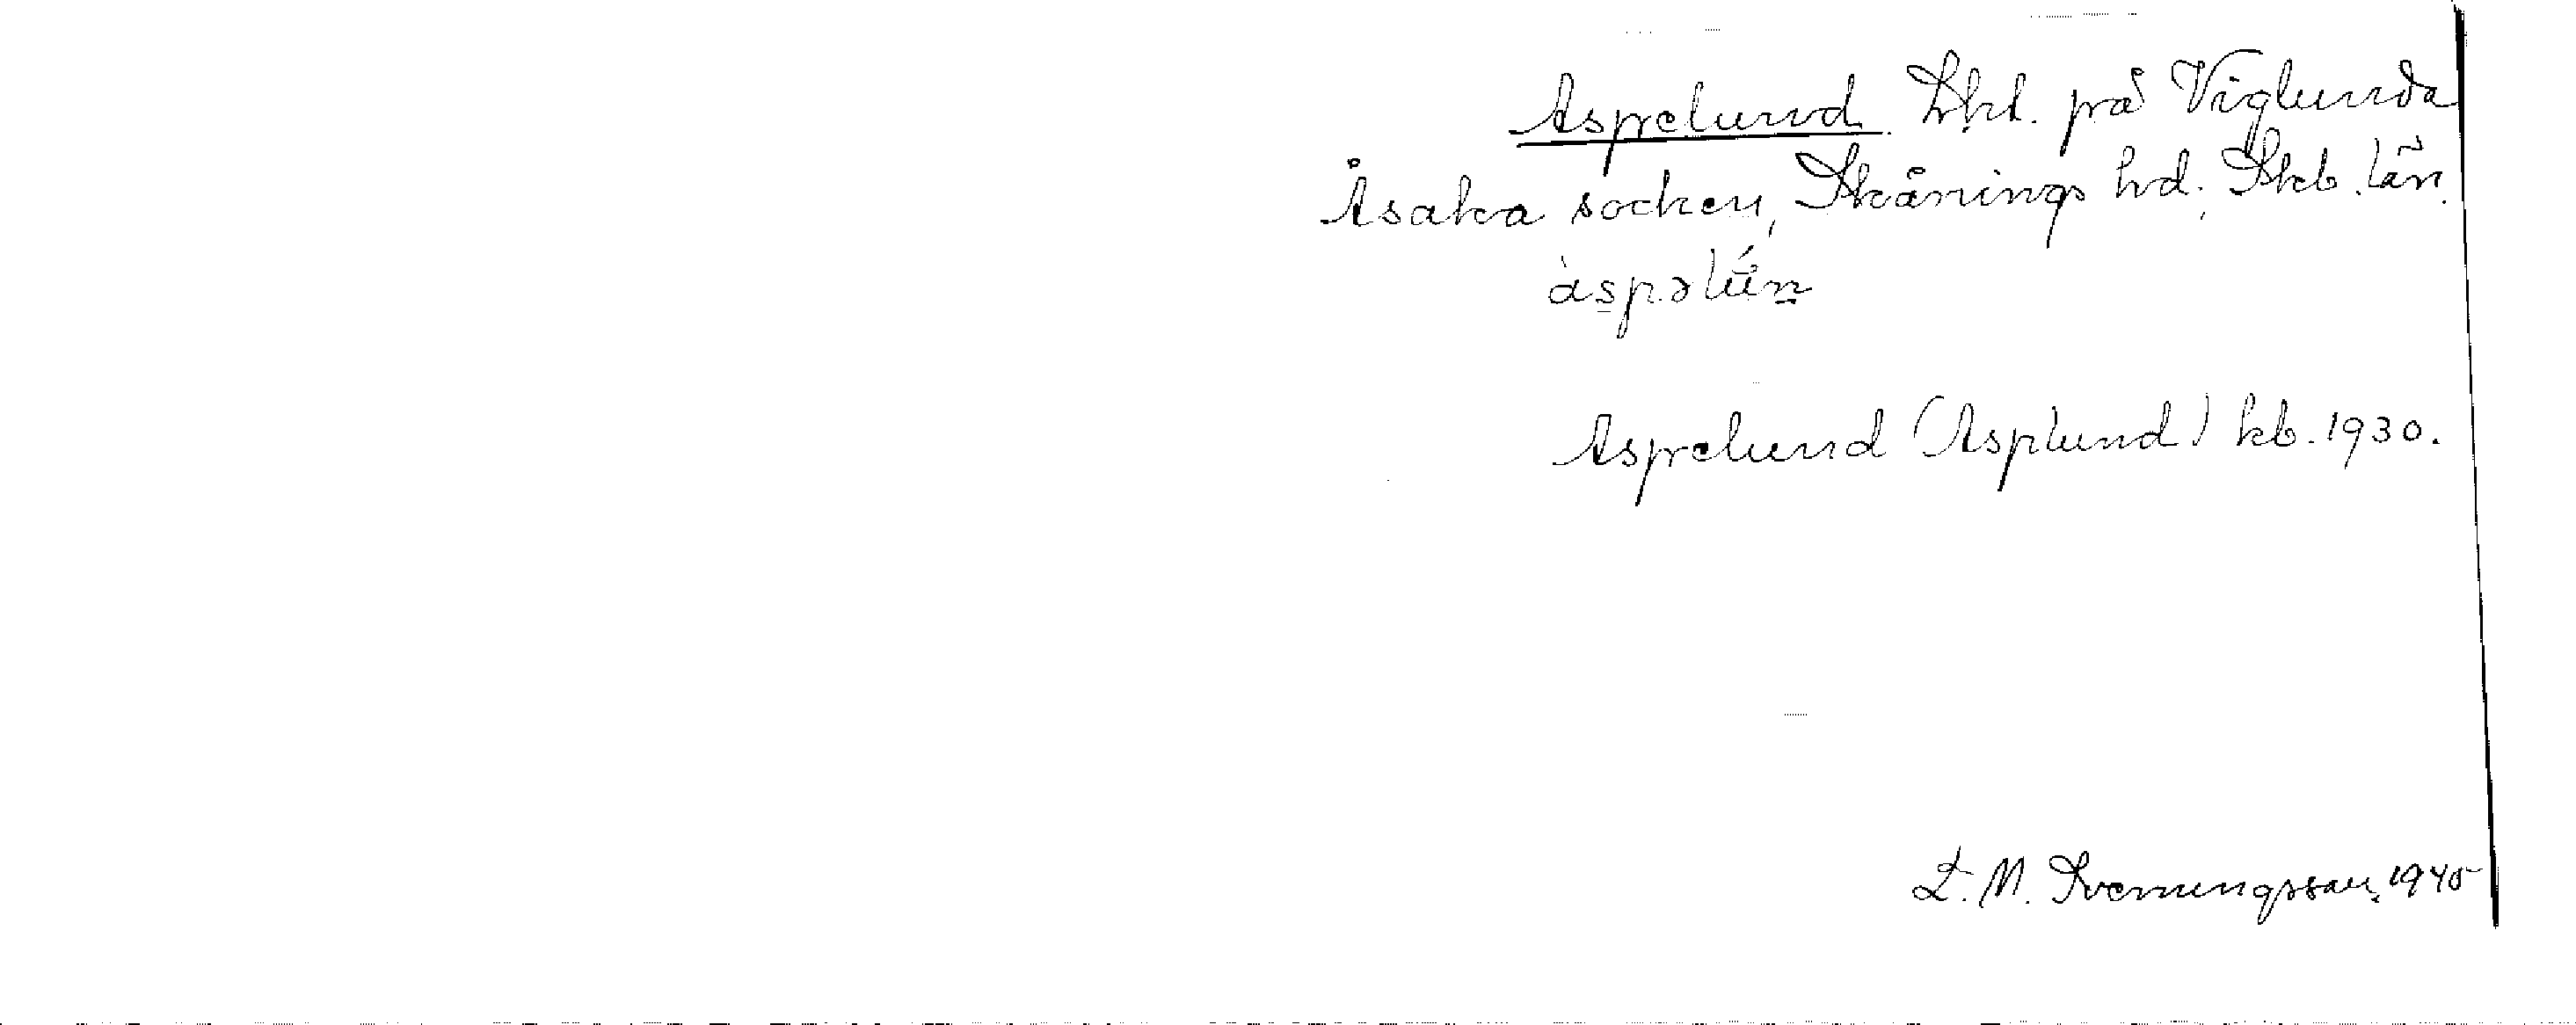 Aspelund. Lht. på Viglunda
Åsaka socken, Skånings hd., Skb. län.
àspəlún
Aspelund (Asplund) kb. 1930.
L. M. Svenungsson, 1940